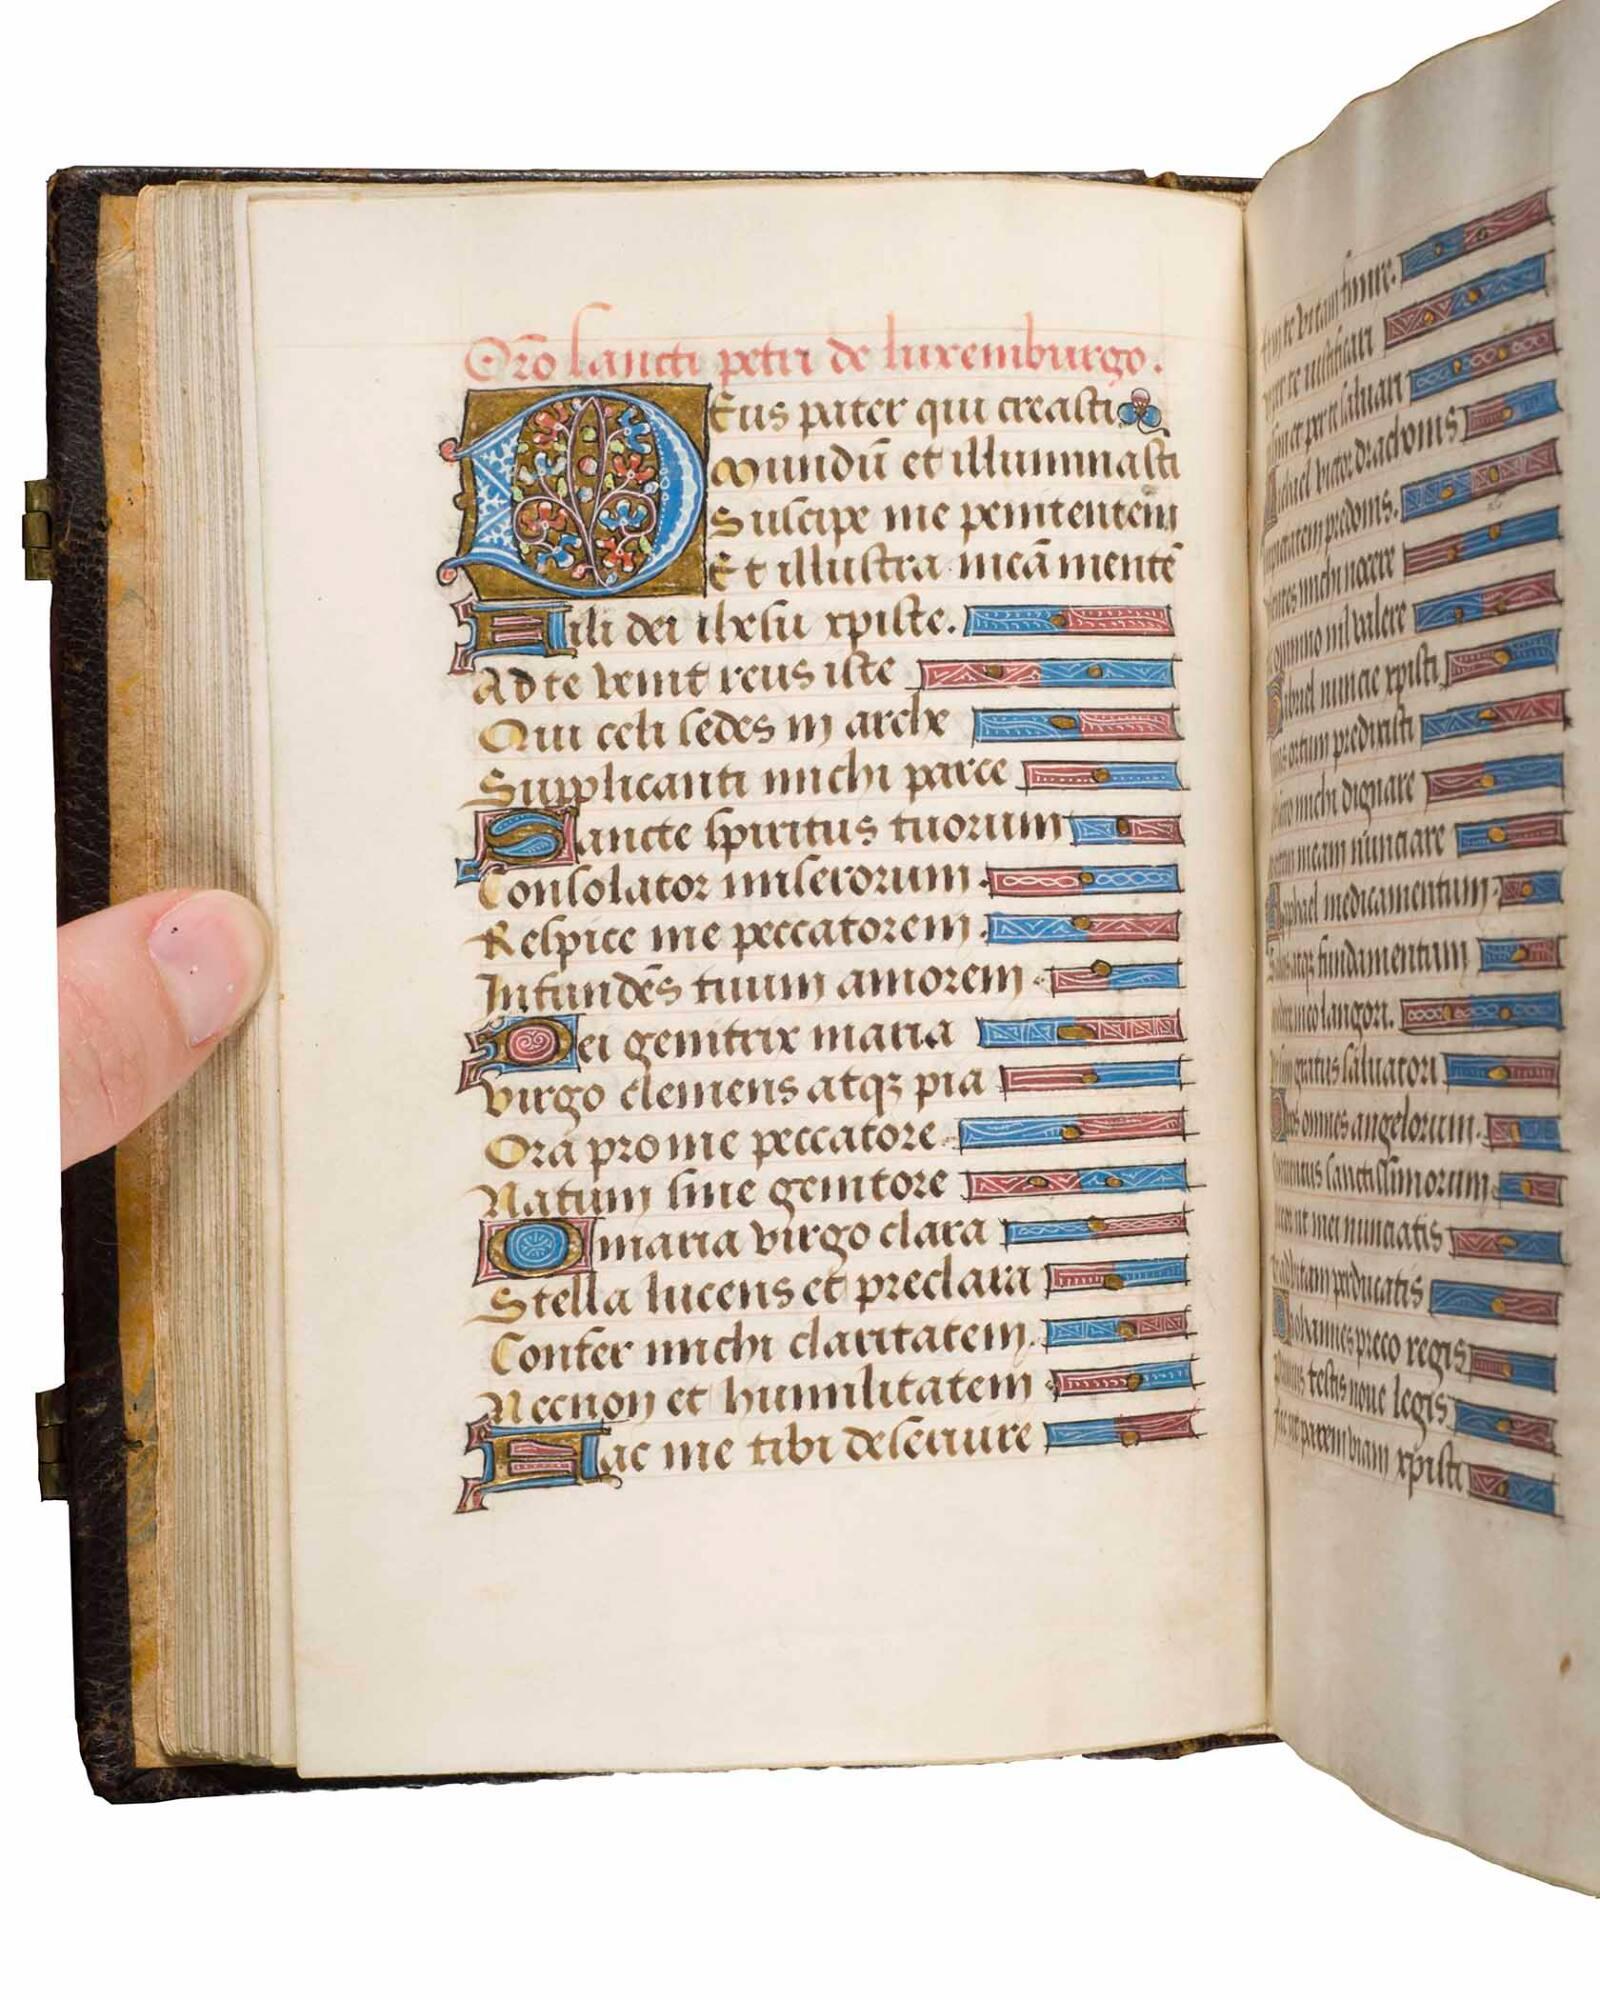 Orõ sancti petri de luxemburgo.
Deus pater qui creasti
Mundũ et illuminasti
Suscipe me penitentem
Et illustra meã mentẽ
Fili dei ihesu xpiste.
Ad te venit reus iste
Qui celi sedes in arche
Supplicanti michi parce
Sancte spiritus tuorum
Consolator miserorum.
Respice me peccatorem.
Infundẽs tuum amorem.
Dei genitrix maria
Virgo clemens atqꝫ pia
Ora pro me peccatore.
Natum sine genitore
O maria virgo clara
Stella lucens et preclara
Confer michi claritatem.
Necnon et humilitatem
Fac me tibi deseruire
vitam finire.
te iustificari
et per te saluari
Michael victor drachonis
predonis.
michi nocere
nil valere
Gabriel nuncie xpisti
ortum predixisti
michi dignare
meam nunciare
Raphael medicamentum
fundamentum
meo langori.
gratus saluatori
Vos omnes angelorum.
sanctissimorum
mei nunciatis
peducatis
Iohannes preco regis
testis noue legis
viam xpisti